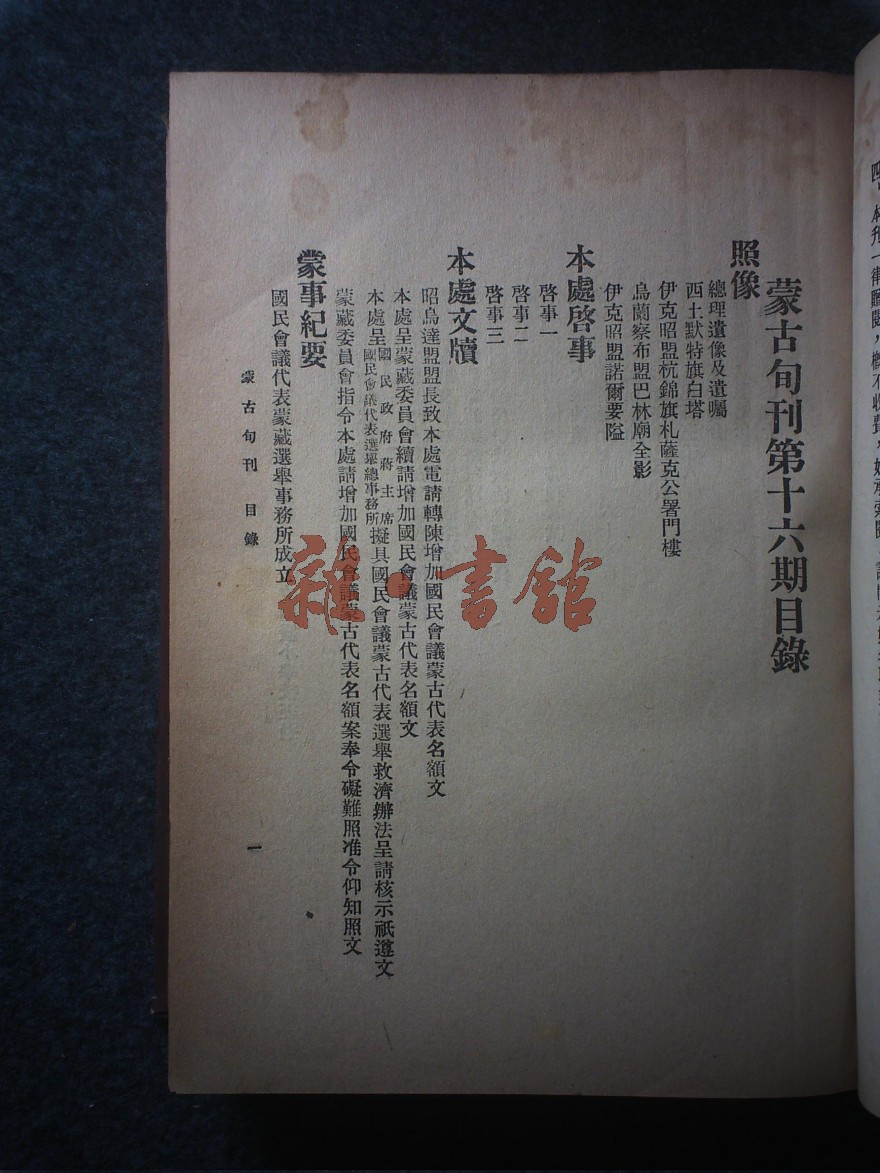 蒙古旬刊第十六期目錄
照像
總理遺像及遺囑
西土默特旗白塔
伊克昭盟杭錦旗札薩克公署門樓
烏蘭察布盟巴林廟全影
伊克昭盟諾爾要隘
本處啓事
啓事一
啓事二
啓事三
本處文牘
昭烏達盟盟長致本處電請轉陳增加國民會議蒙古代表名額文
本處呈蒙藏委員會續請增加國民會議蒙古代表名額文
本處呈國民政府蔣主席國民會議代表選舉總事務所擬具國民會議蒙古代表選舉救濟辦法呈請核示祇遵文
蒙藏委員會指令本處請增加國民會議蒙古代表名額案奉令礙難照准令仰知照文
蒙事紀要
國民會議代表蒙藏選舉事務所成立
蒙古旬刊 目錄
一
雜·書館